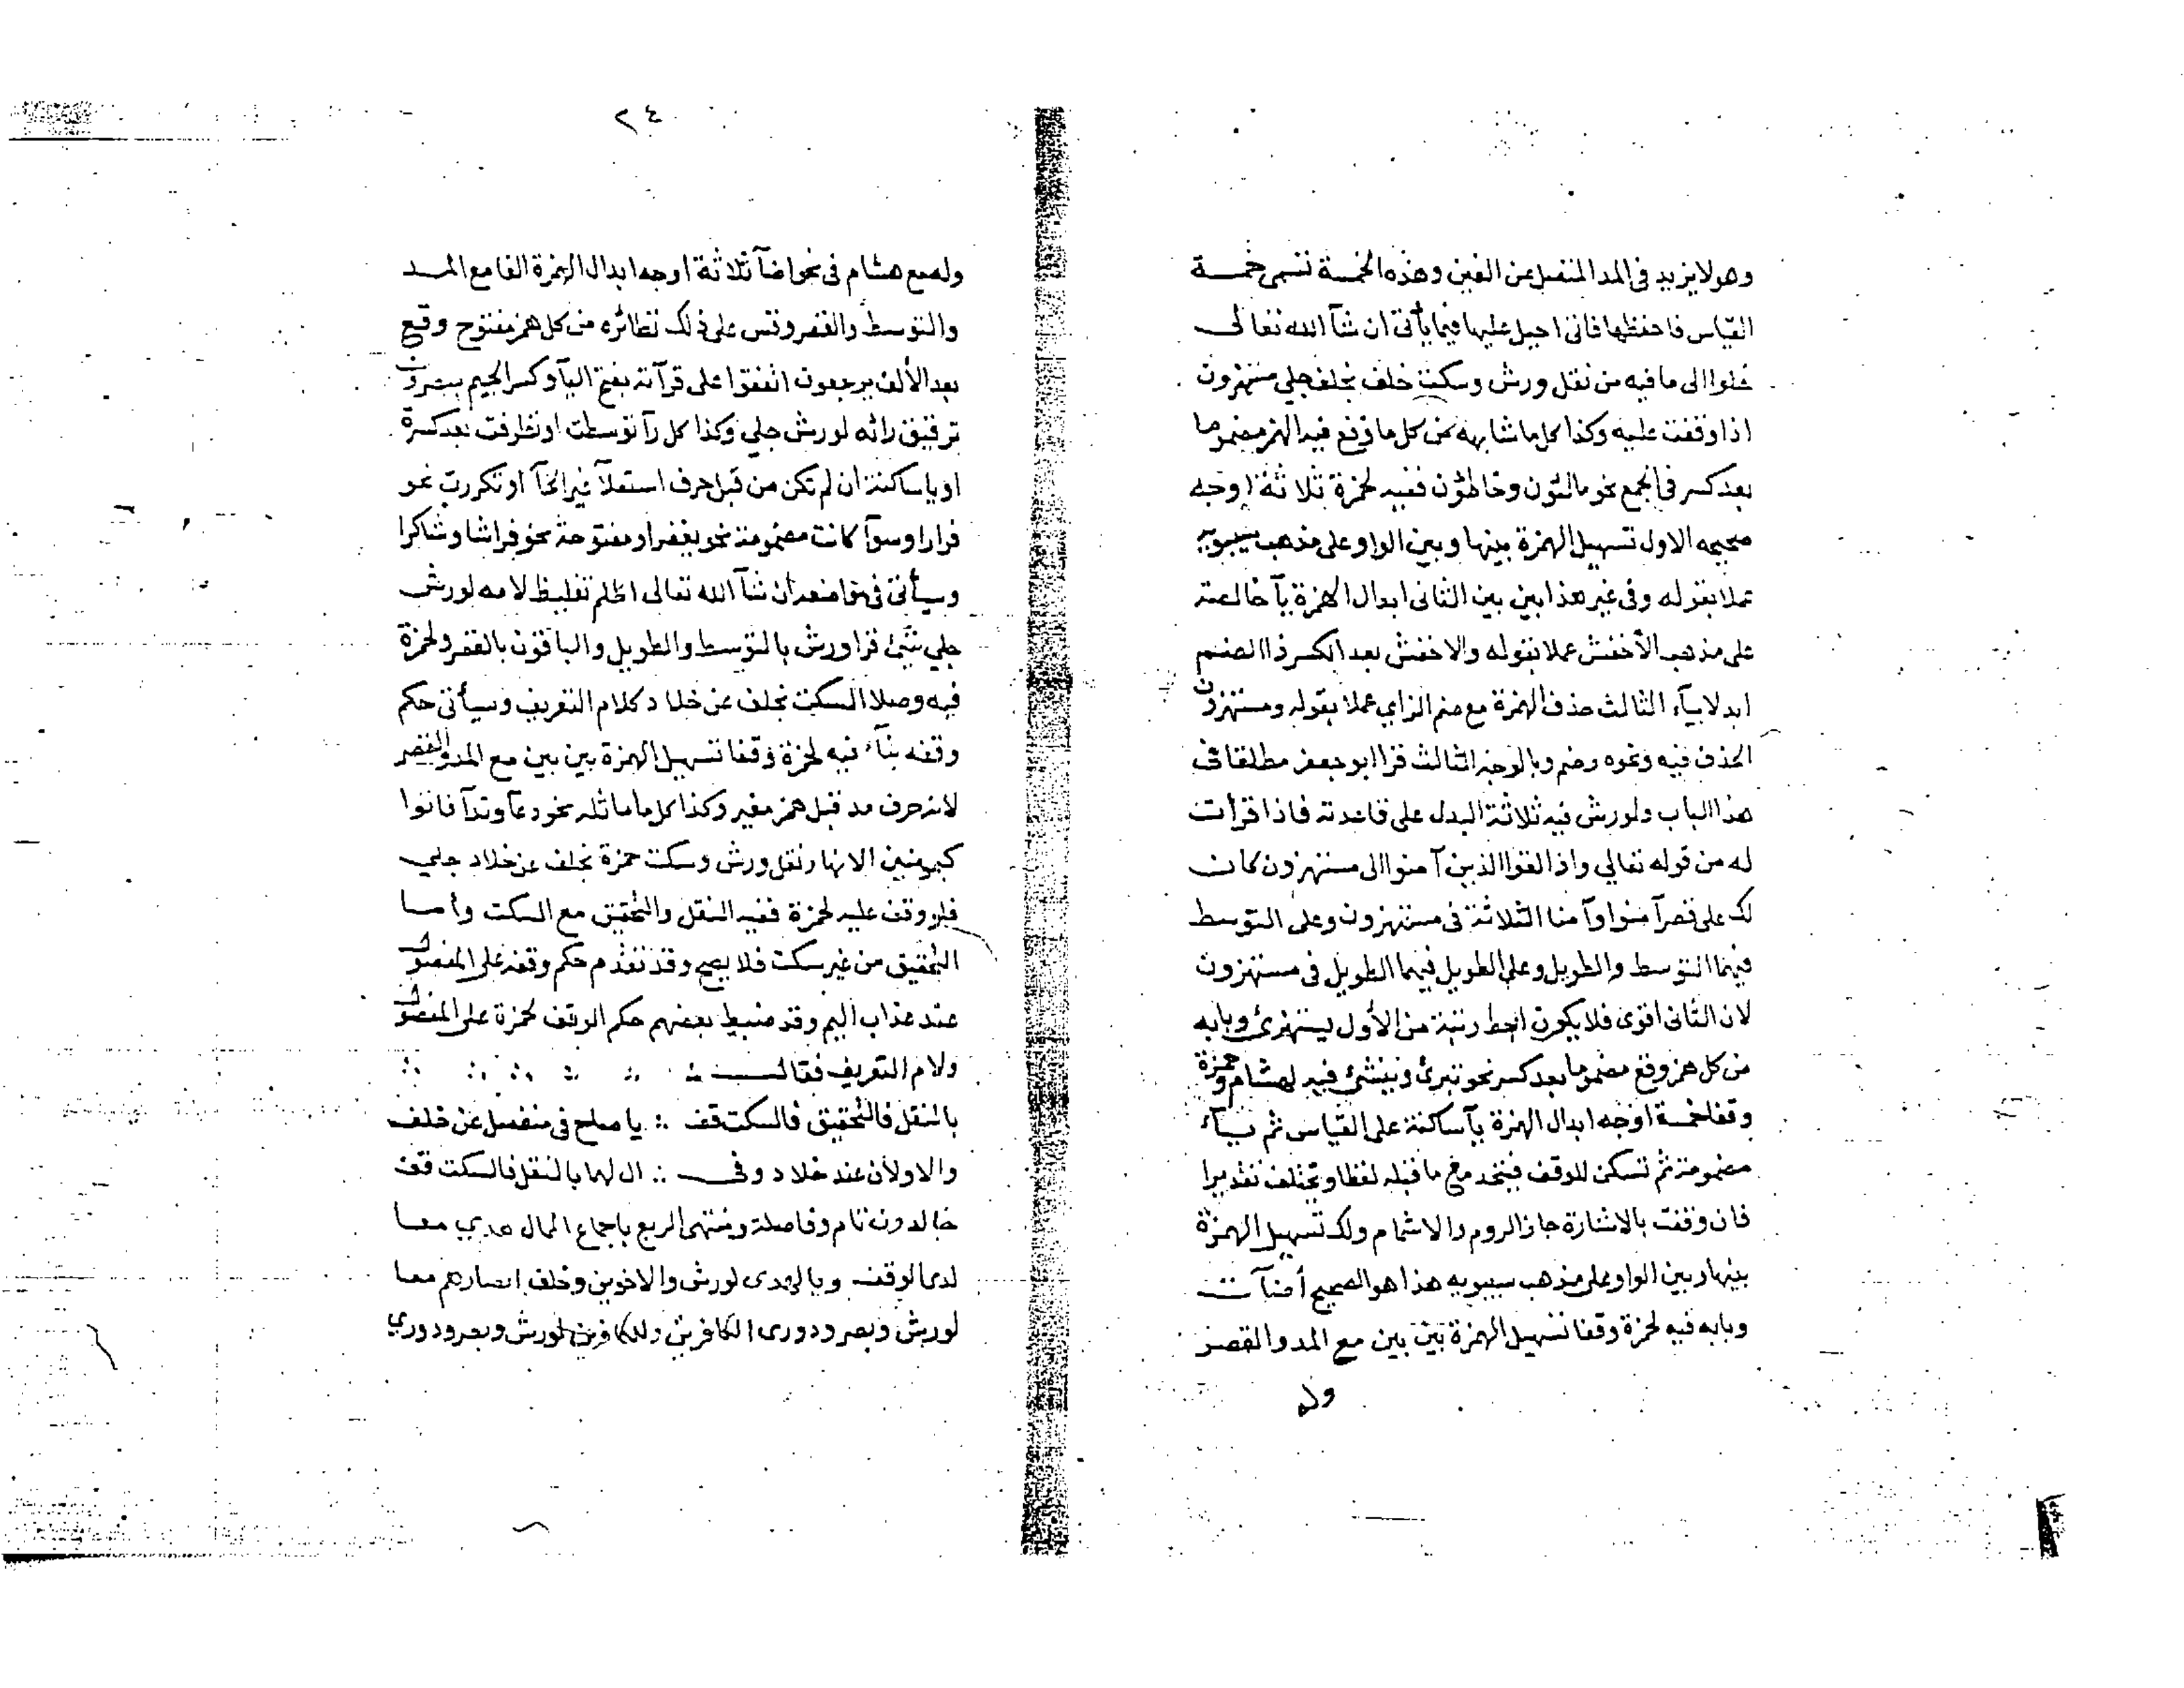 وهو لا يزيد في المد المنفصل عن الفين وهذه الخمسة تسمى خمسة
القياس فاحفظها فاني احيل عليها فيما يأتى ان شآ الله تعالى
خلوا الى ما فيه من نقل ورش وسكت خلف بخلف جلي مستهزون
اذا وقفت عليه وكذا كل ما شابهه من كل ما وقع فيه الهمز مضموما
بعد كسر في الجمع نحو مالئون وخاطؤن ففيه لحمزة ثلاثة اوجه
صحيحه الاول تسهيل الهمزة بينها وبين الواو على مذهب سيبويه
عملا بقوله وفى غير هذا بين بين الثانى ابدال الهمزة يآ خالصة
على مذهب الأخفش عملا بقوله والاخفش بعد الكسر ذا الضم
ابدلا بيآء الثالث حذف الهمزة مع ضم الزاي عملا بقوله ومستهزون
الحذف فيه ونحوه وضم وبالوجه الثالث قرا ابو جعفر مطلقا في
هذا الباب ولورش فيه ثلاثة البدل على قاعدته فاذا قرأت
له من قوله تعالي واذا لقوا الذين آمنوا الى مستهزون كانت
لك على قصر آمنوا وآمنا الثلاثة فى مستهزون وعلى التوسط
فيهما التوسط والطويل وعلى الطويل فيهما الطويل فى مستهزون
لان الثانى اقوى فلا يكون احط رتبة من الأول يستهزئ وبابه
من كل همز وقع مضموما بعد كسر نحو تبرئ وينشئ فيه لهشام وحمزة
وقفا خمسة اوجه ابدال الهمزة يآ ساكنة على القياس ثم بيآء
مضمومة ثم تسكن للوقف فيتحد مع ما قبله لفظا ويختلف تقديرا
فان وقفت بالاشارة جاز الروم والاشمام ولك تسهيل الهمزة
بينها وبين الواو على مذهب سيبويه هذا هو الصحيح أضآت
وبابه فيه لحمزة وقفا تسهيل الهمزة بين بين مع المد والقصر
وله
٢٤
وله مع هشام فى نحو اضآ ثلاثة اوجه ابدال الهمزة الفا مع المد
والتوسط والقصر وقس على ذلك نظائره من كل همز مفتوح وقع
بعد الألف يرجعون اتفقوا على قرآته بفتح اليآ وكسر الجيم يبصرون
ترقيق رائه لورش جلي وكذا كل رآ توسطت او تطرفت بعد كسرة
او يا ساكنة ان لم تكن من قبل حرف استعلآ غير الخآ او تكررت نحو
فرارا وسوآ كانت مضمومة نحو يغفر او مفتوحة نحو فراشا وشاكرا
وسيأتى فى مواضعه ان شآ الله تعالى اظلم تغليظ لامه لورش
جلي شئ قرا ورش بالتوسط والطويل والباقون بالقصر ولحمزة
فيه وصلا السكت بخلف عن خلاد كلام التعريف وسيأتى حكم
وقفه بنآء فيه لحمزة وقفا تسهيل الهمزة بين بين مع المد والقصر
لانه حرف مد قبل همز مغير وكذا كل ما ماثله نحو دعآ وندآ فاتوا
كيومنين الانهار نقل ورش وسكت حمزة بخلف عن خلاد جلي
فلو وقف عليه لحمزة ففيه النقل والتحقيق مع السكت وأما
التحقيق من غير سكت فلا يصح وقد تقدم حكم وقفه على المفصول
عند عذاب اليم وقد ضبط بعضهم حكم الوقف لحمزة على المفصول
ولام التعريف فقال
بالنقل فالتحقيق فالسكت قف ∴ يا صاح فى منفصل عن خلف
والاولان عند خلاد وفى ∴ ال لهما بالنقل فالسكت قف
خالدون تام وفاصلة ومنتهى الربع باجماع الممال هدي معا
لدى الوقف وبالهدى لورش والاخوين وخلف ابصارهم معا
لورش وبصر ودورى الكافرين وللكافرين لورش وبصر ودوري